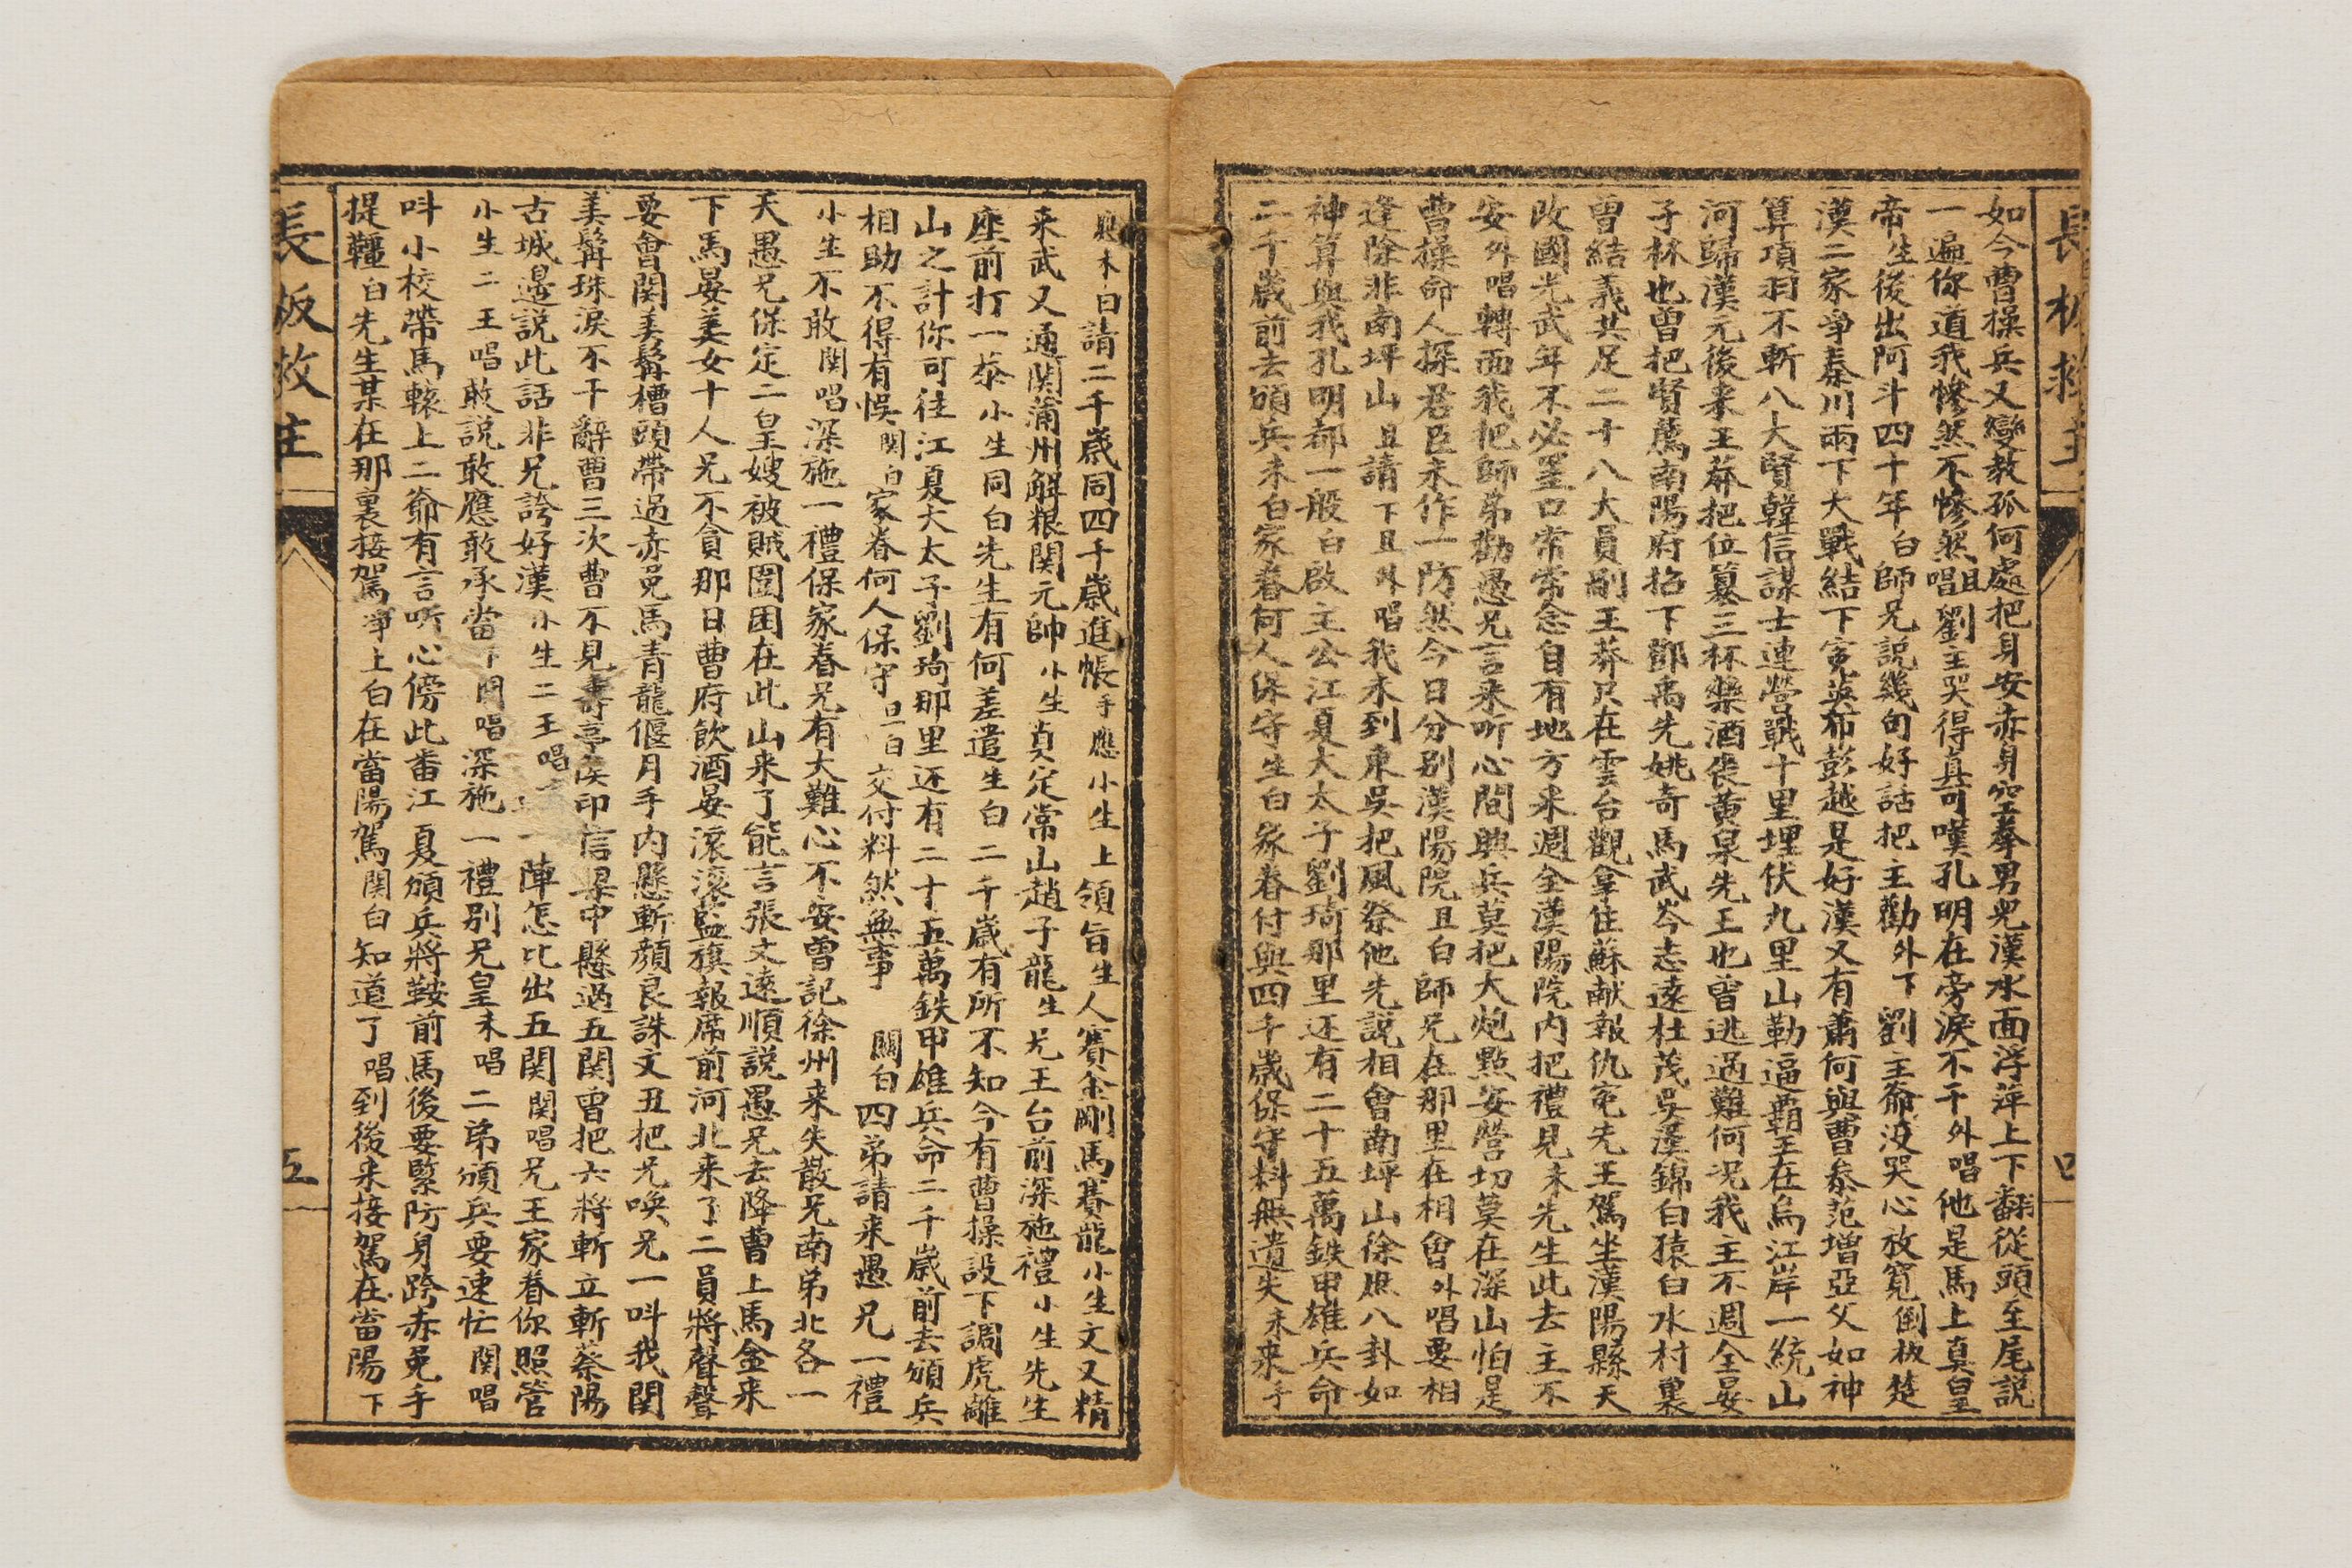 長板救主
四
如今曹操兵又變教孤何處把身安赤身空拳男兒漢水面浮萍上下翻從頭至尾説
一遍你道我慘然不慘然唱且劉主哭得真可嘆孔明在旁淚不干外唱他是馬上真皇
帝生後出阿斗四十年白師兄説幾句好話把主勸外下劉主爺没哭心放寬倒板楚
漢二家爭秦川兩下大戰結下寃英布彭越是好漢又有蕭何與曹参范增亞父如神
算項羽不斬八大賢韓信謀士連營戰十里埋伏九里山勒逼霸王在烏江岸一統山
河歸漢元後来王莽把位篡三杯藥酒喪黄泉先王也曾逃過難何况我主不週全晏
子林也曾把賢薦南陽府招下鄧禹先姚奇馬武岑志遠杜茂吳漢錦白猿白水村裏
曾結義共足二十八大員剮王莽只在雲台觀拿住蘇献報仇寃先王駕坐漢陽縣天
改國光武年不必呈口常常念自有地方来週全漢陽院内把禮見末先生此去主不
安外唱轉面我把師弟勸愚兄言来听心間興兵莫把大炮點安營切莫在深山怕是
曹操命人探君臣未作一防然今日分别漢陽院且白師兄在那里在相會外唱要相
逢除非南坪山且請下且外唱我未到東吳把風祭他先説相會南坪山徐庶八卦如
神算與我孔明都一般白啟主公江夏大太子劉琦那里还有二十五萬鉄甲雄兵命
二千歲前去頒兵末白家眷何人保守生白家眷付與四千歲保守料無遺失末来手
應末白請二千歲同四千歲進帳手應小生上領旨生人賽金剛馬賽龍小生文又精
来武又通関蒲州解粮関元帥小生貞定常山趙子龍生尤王台前深施禮小生先生
座前打一恭小生同白先生有何差遣生白二千歲有所不知今有曹操設下調虎離
山之計你可往江夏大太子劉琦那里还有二十五萬鉄甲雄兵命二千歲前去頒兵
相助不得有悞関白家眷何人保守旦白交付料然無事関白四弟請来愚兄一禮
小生不敢関唱深施一禮保家眷兄有大難心不安曾記徐州来失散兄南弟北各一
天愚兄保定二皇嫂被賊圍困在此山来了能言張文遠順説愚兄去降曹上馬金来
下馬晏美女十人兄不貪那日曹府飲酒晏滚滚藍旗報席前河北来了二員將聲聲
要會関美髯槽頭帶過赤兎馬青龍偃月手内懸斬顔良誅文丑把兄唤兄一呌我関
美髯珠淚不干辭曹三次曹不見壽亭侯印信梁中懸過五関曾把六將斬立斬蔡陽
古城邊説此話非兄誇好漢小生二王唱一陣怎比出五関関唱兄王家眷你照管
小生二王唱敢説敢應敢承當下関唱深施一禮别兄皇末唱二弟頒兵要速忙関唱
呌小校帶馬轅上二爺有言听心傍此番江夏頒兵將鞍前馬後要緊防身跨赤兎手
提韁白先生某在那裏接駕淨上白在當陽駕関白知道了唱到後来接駕在當陽下
長板救主
五